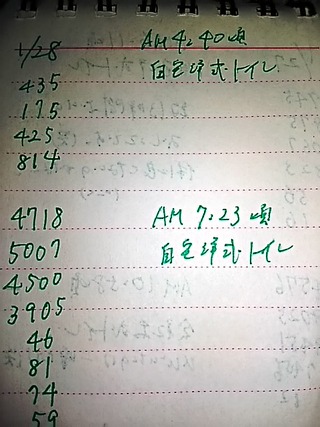 1/28 AM 4.40頃
435 自宅洋式トイレ
175
425
814
4718 AM 7.23頃
5007 自宅洋式トイレ
4500
3905
46
81
74
59